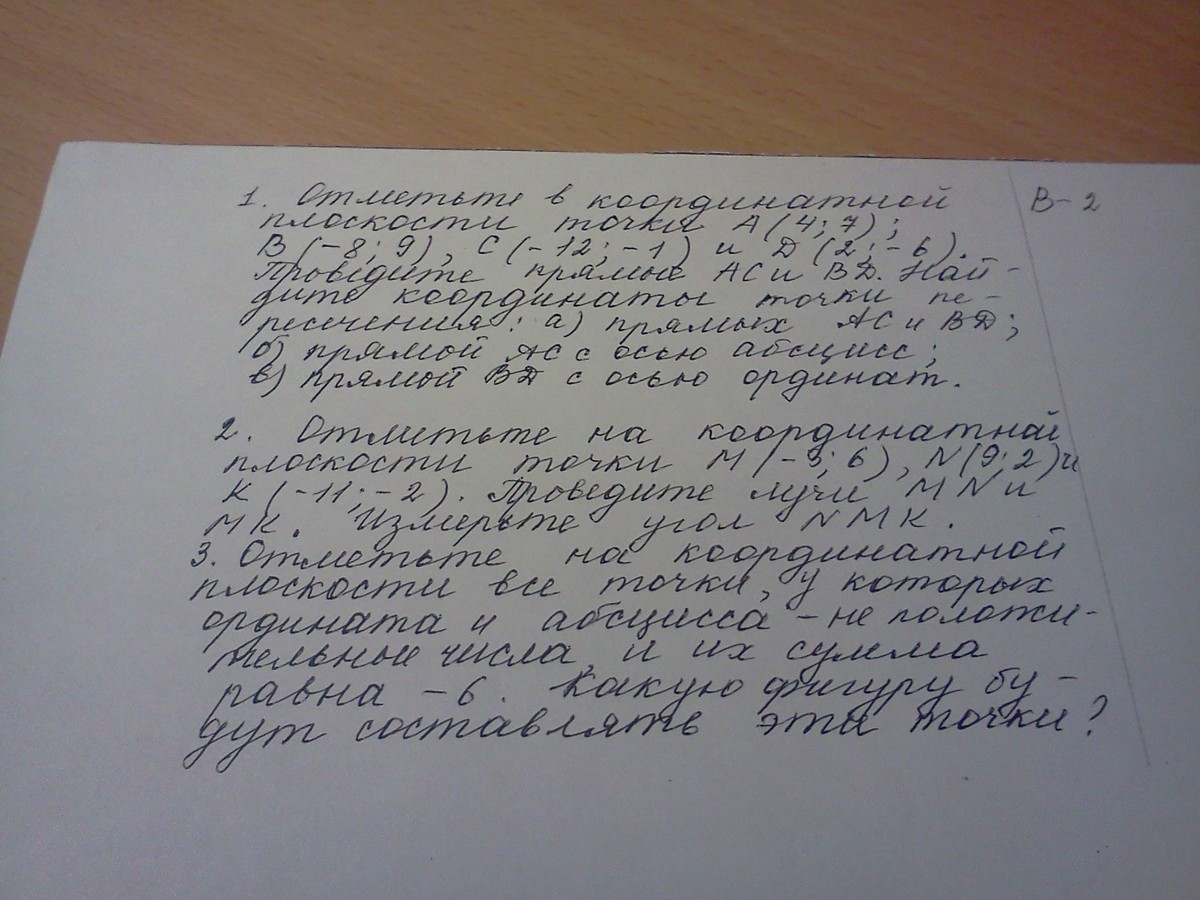 1. Отметьте в координатной
В-2
плоскости точки А (4; 7);
В (-8; 9), С (-12; -1) и Д (2; -6).
Проведите прямые АС и ВД. Най-
дите координаты точки пе-
ресечения: а) прямых АС и ВД;
б) прямой АС с осью абсцисс;
в) прямой ВД с осью ординат.
2. Отметьте на координатной
плоскости точки М (-3; 6), N (9; 2) и
К (-11; -2). Проведите лучи MN и
МК. Измерьте угол NMK.
3. Отметьте на координатной
плоскости все точки, у которых
ордината и абсцисса - не положи-
тельные числа, и их сумма
равна -6. Какую фигуру бу-
дут составлять эти точки?